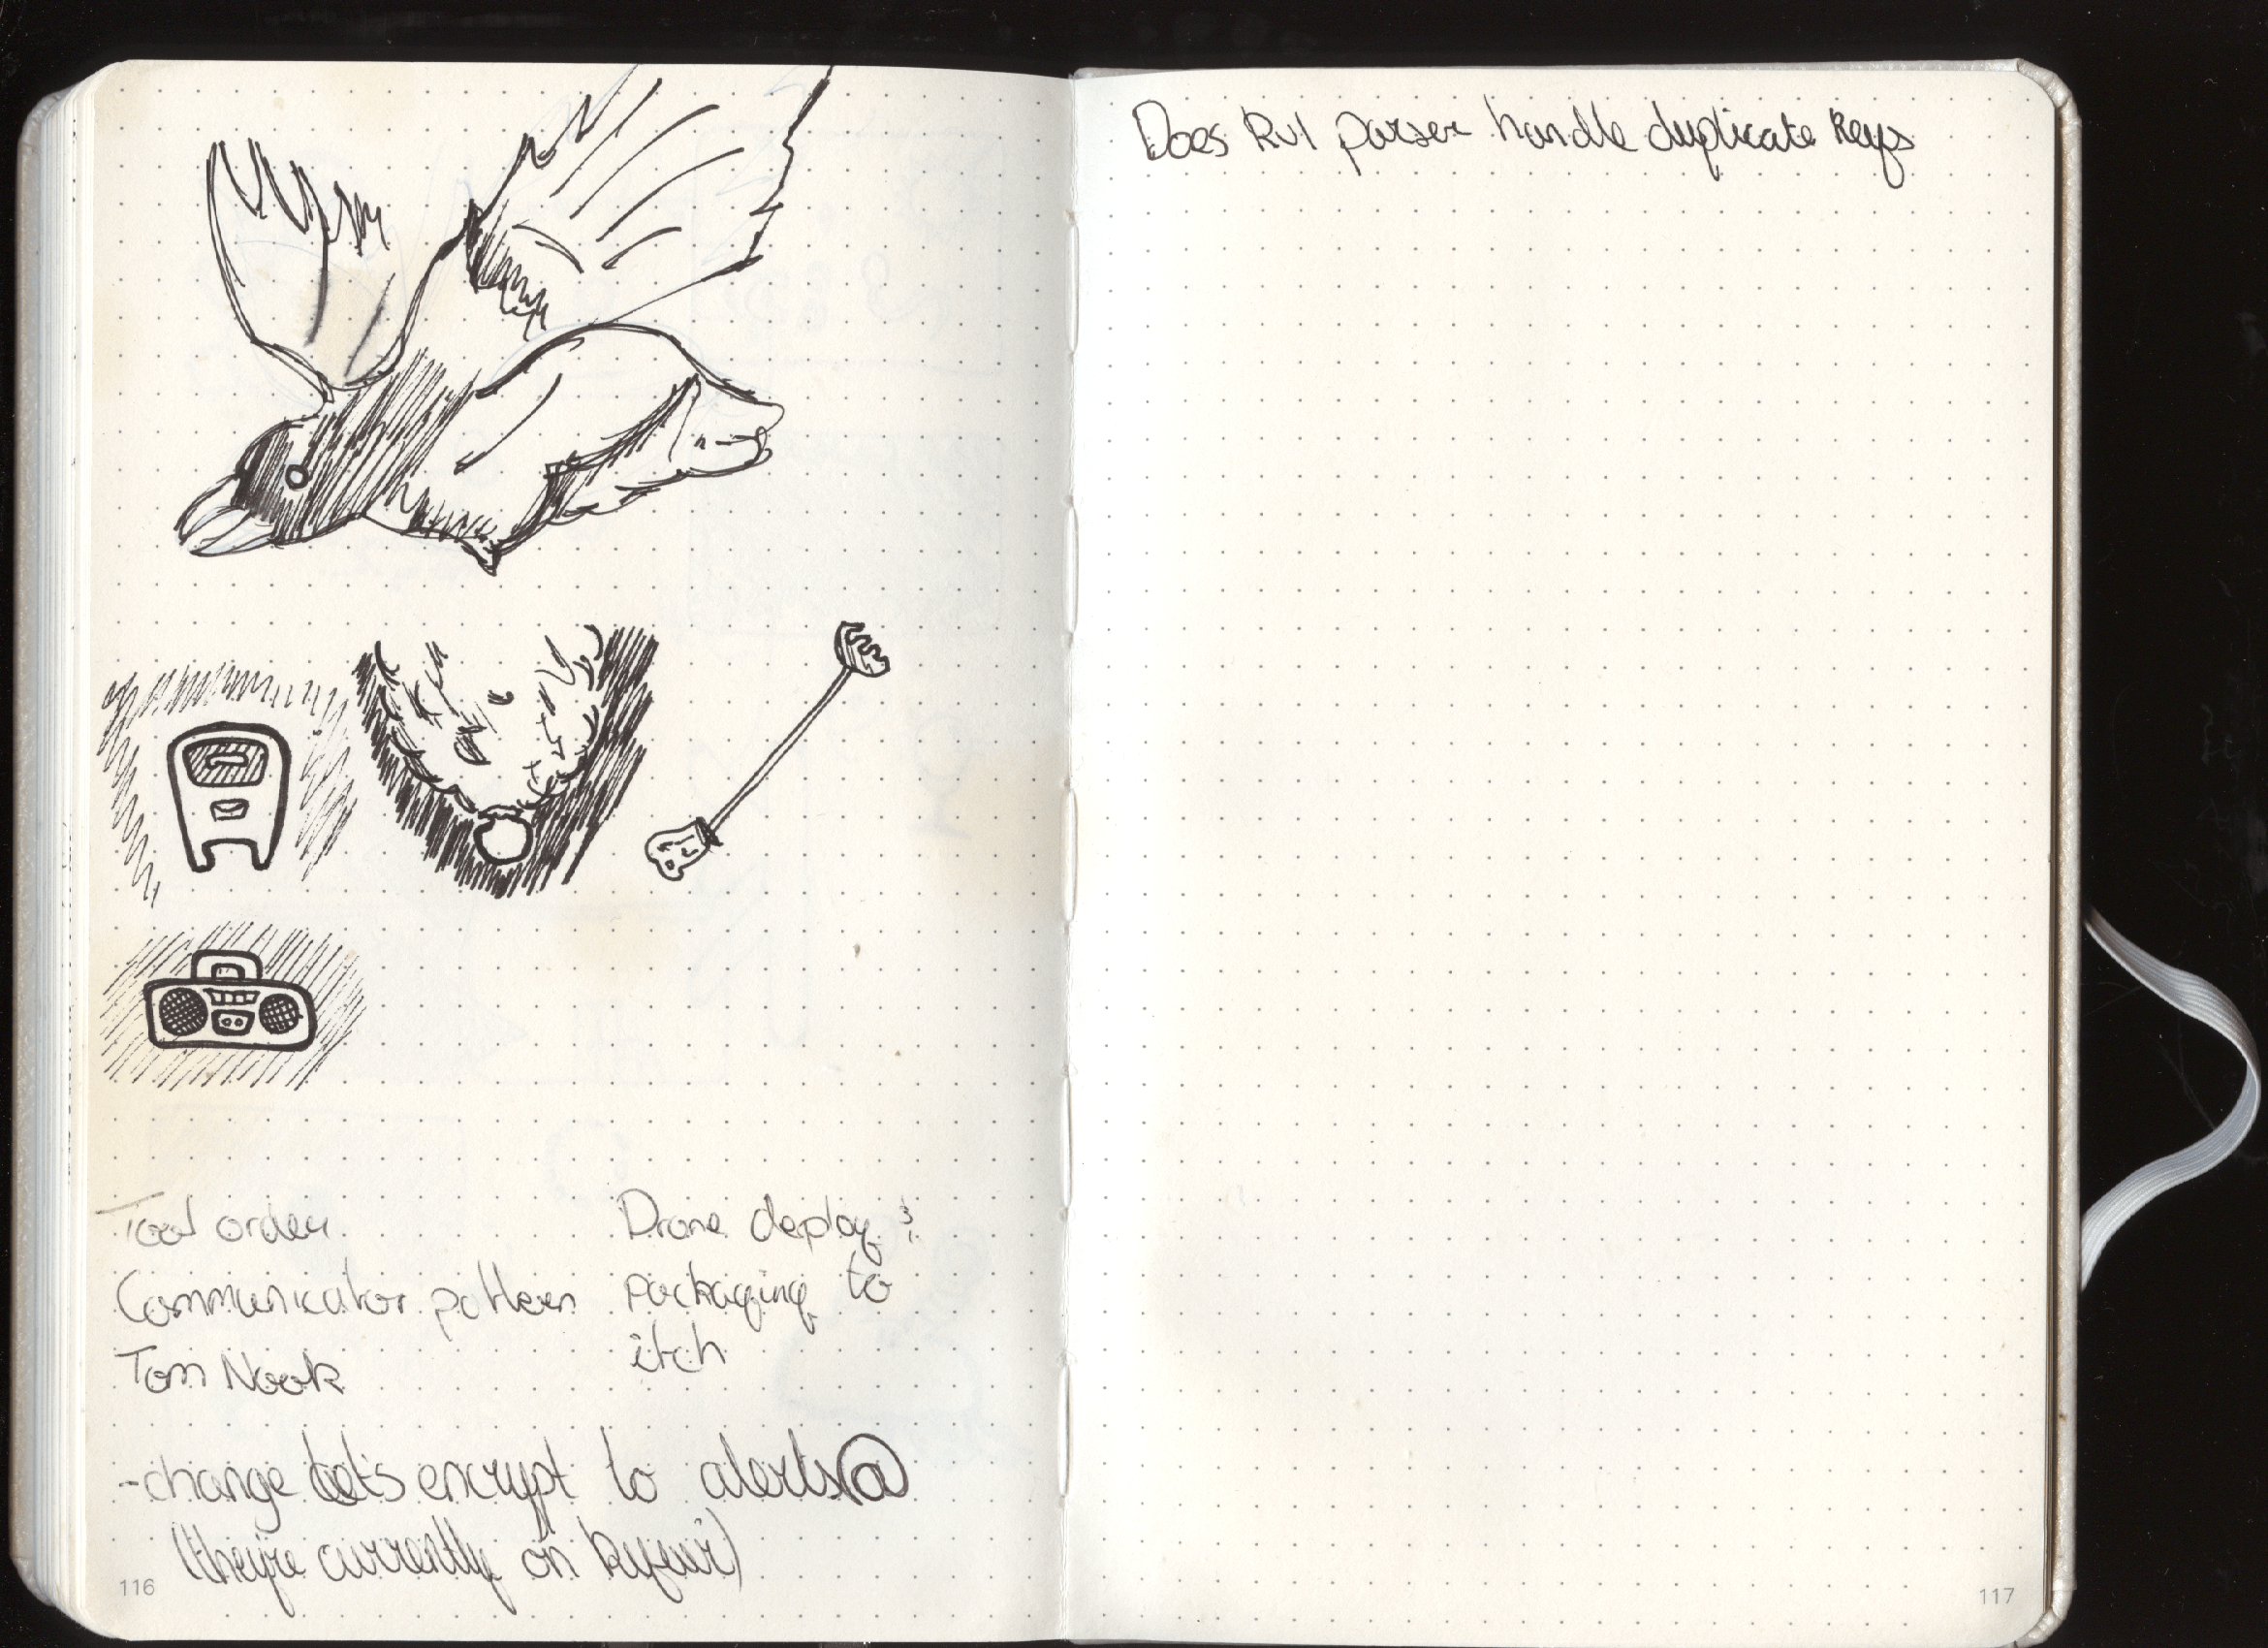 Tool order
Communicator pattern
Tom Nook
Drone deploy &
packaging to
itch
-change let's encrypt to alerts@
(they're currently on
116
Does parser handle duplicate keys
117